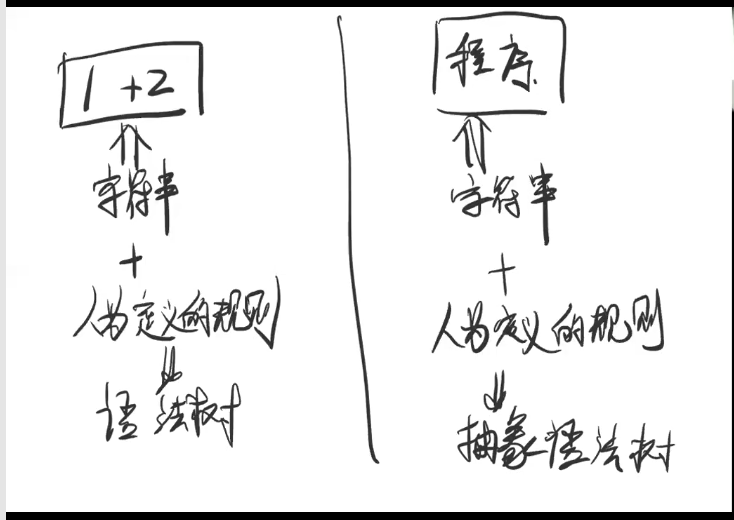 1+2
字符串
+
人为定义的规则
语法树
程序
字符串
+
人为定义的规则
抽象语法树